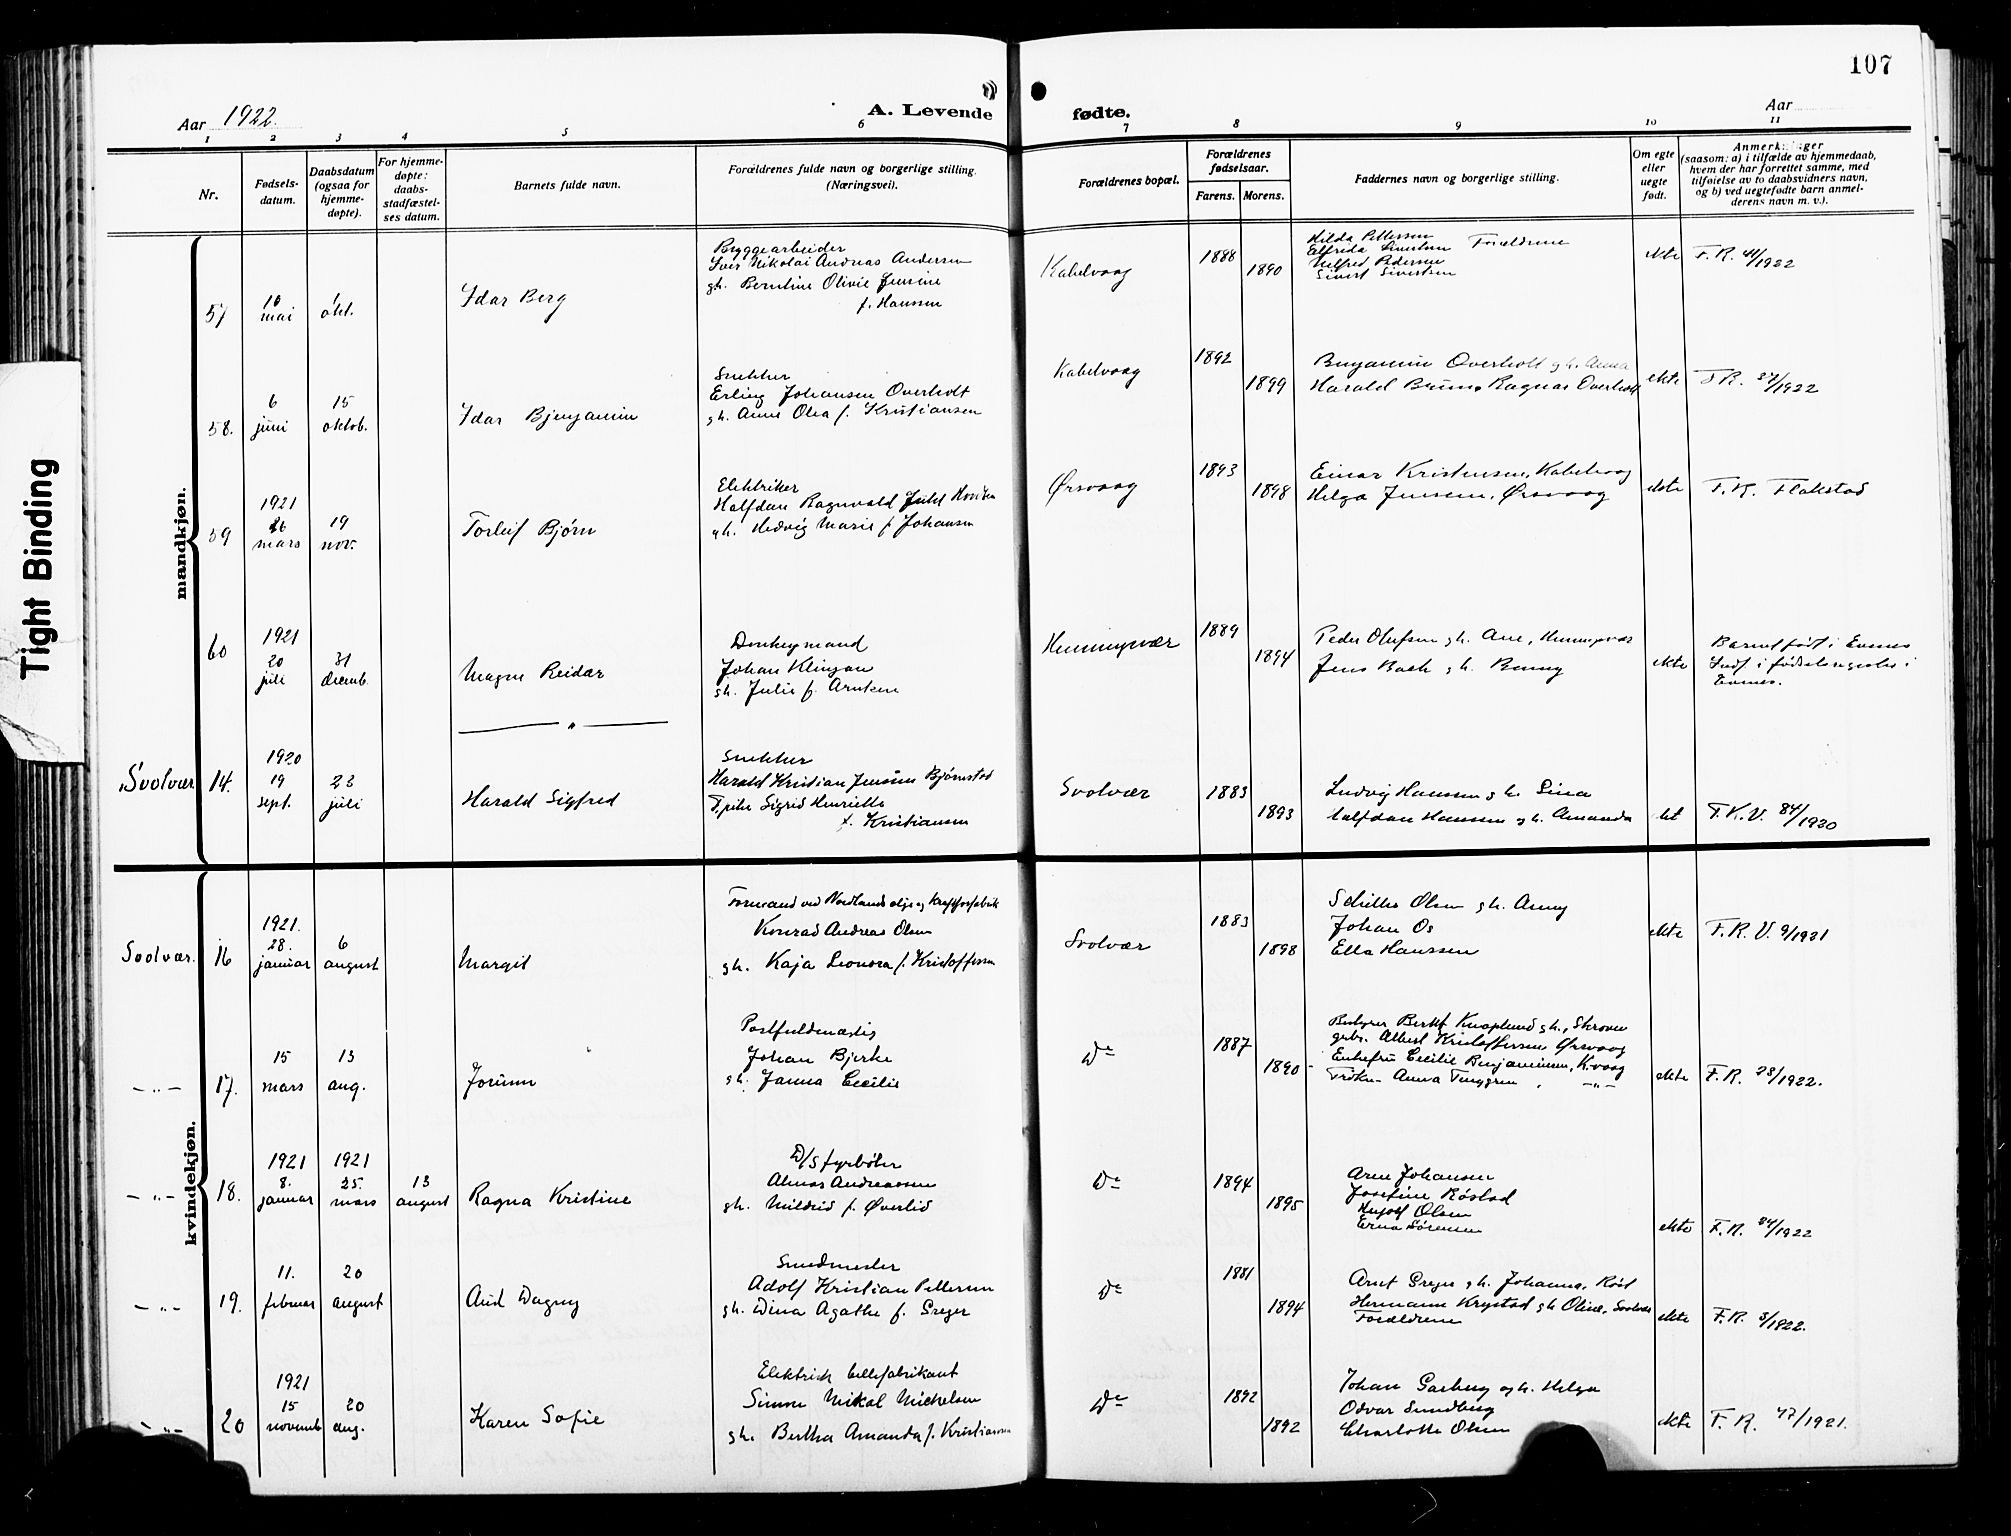 107
Aar 1922.
A. Levende fødte.
Aar
1 2 3 4 5 6 7 8 9 10 11
Nr.
Fødsels-
datum.
Daabsdatum
(ogsaa for
hjemme-
døpte).
For hjemme-
døpte:
daabs-
stadfæstel-
ses datum.
Barnets fulde navn.
Forældrenes fulde navn og borgerlige stilling.
(Næringsvei).
Forældrenes bopæl.
Forældrenes
fødselsaar.
Farens. Morens.
Faddernes navn og borgerlige stilling.
Om egte
eller
uegte
født.
Anmerkninger
(saasom: a) i tilfælde av hjemmedaab,
hvem der har forrettet samme, med
tilføielse av to daabsvidners navn,
og b) ved uegtefødte barn anmel-
derens navn m. v.).
Tight Binding
mandkjøn.
57
10
mai
1
okt.
Idar Berg
Bryggearbeider
Iver Nikolai Andreas Andersen
gh. Berntine Olivie Jensine
f. Hansen
Kabelvaag
1888
1890
Hilda Pettersen
Elfrida Sivertsen Forældrene
Pedersen
Sivert Sivertsen
ekte
F. R. 44/1922
58.
6
juni
15
oktob.
Idar Bjenjamin
Snekker
Erling Johansen Overholt
gh. Anna Olea f. Kristiansen
Kabelvaag
1892
1899
Benjamin Overholt gh. Anna
Harald Ragnar Overholt
ekte
F R. 37/1922
59
1921
26
mars
19
nov.
Torleif Bjørn
Elektriker
Halfdan Ragnvald
gh. Hedvig Marie f Johansen
Ørsvaag
1893
1898
Einar Kristensen, Kabelvaag
Helga Jensen, Ørsvaag
ekte
F. R. Flakstad
60
1921
20
juli
31
decemb.
Magne Reidar
Donkeymand
Johan Klingan
gh. Julie f. Arntsen
Henningsvær
1889
1894
Peder Olufsen gh. Ane, Henningsvær
Jens Bach gh. Benny
ekte
Barnet født i Evenes
Indf i fødselsregister i
Evenes.
— " —
Svolvær
14.
1920
19
sept.
23
juli
Harald Sigfred
Snekker
Harald Kristian Jensen Bjørnstad
Sigrid Henriette
f. Kristiansen
Svolvær
1883
1893
Ludvig Hansen gh. Sina
Halfdan Hansen gh. Amanda
F.K.V. 84/1920
kvindekjøn.
Svolvær.
16
1921.
28.
januar
6
august
Margit
Formand ved Nordlands olje og kraftforfabrik
Konrad Andreas Olsen
gh. Kaja Leonora f. Kristoffersen
Svolvær
1883
1898
Olsen gh. Anny
Johan Os
Ella Hanssen
ekte
F. R. V. 9/1921
— " —
17.
15
mars
13
aug.
Jorunn
Postfuldmægtig
Johan Bjerke
gh. Janna Cecilie
Do
1887
1890
Bestyrer Knaplund gh., Skroven
gbr. Albert Kristoffersen Ørsvaag
Enkefru Cecilie Benjaminsen, K.vaag
Frøken Anna Tenggren, — " —
ekte
F. R. 28/1922.
— " —
18.
1921
8.
januar
1921
25.
mars
13
august
Ragna Kristine
D/S fyrbøter
Almar Andreassen
gh. Mildrid f. Øverlid
Do
1894
1895
Arne Johansen
Josefine Røstad
Olsen
Erna Sørensen
ekte
F. R. 24/1922
— " —
19.
11.
februar
20
august
Aud Dagny
Smedmester
Adolf Kristian Pettersen
gh. Dina Agathe f. Greger
Do
1881
1894
Arnt Greger gh. Johanna, Røst
Hermann Krystad gh Oline, Svolvær
Forældrene
ekte
F. R. 3/1922.
— " —
20
1921
15
novemb
20
aug.
Karen Sofie
Elektrisk cellefabrikant
Simon Nikol Michelsen
gh. Bertha Amanda f. Kristiansen
Do
1892
1892
Johan Garberg og h. Helga
Odvar Sundberg
Charlotte Olsen
ekte
F. R. 47/1921.